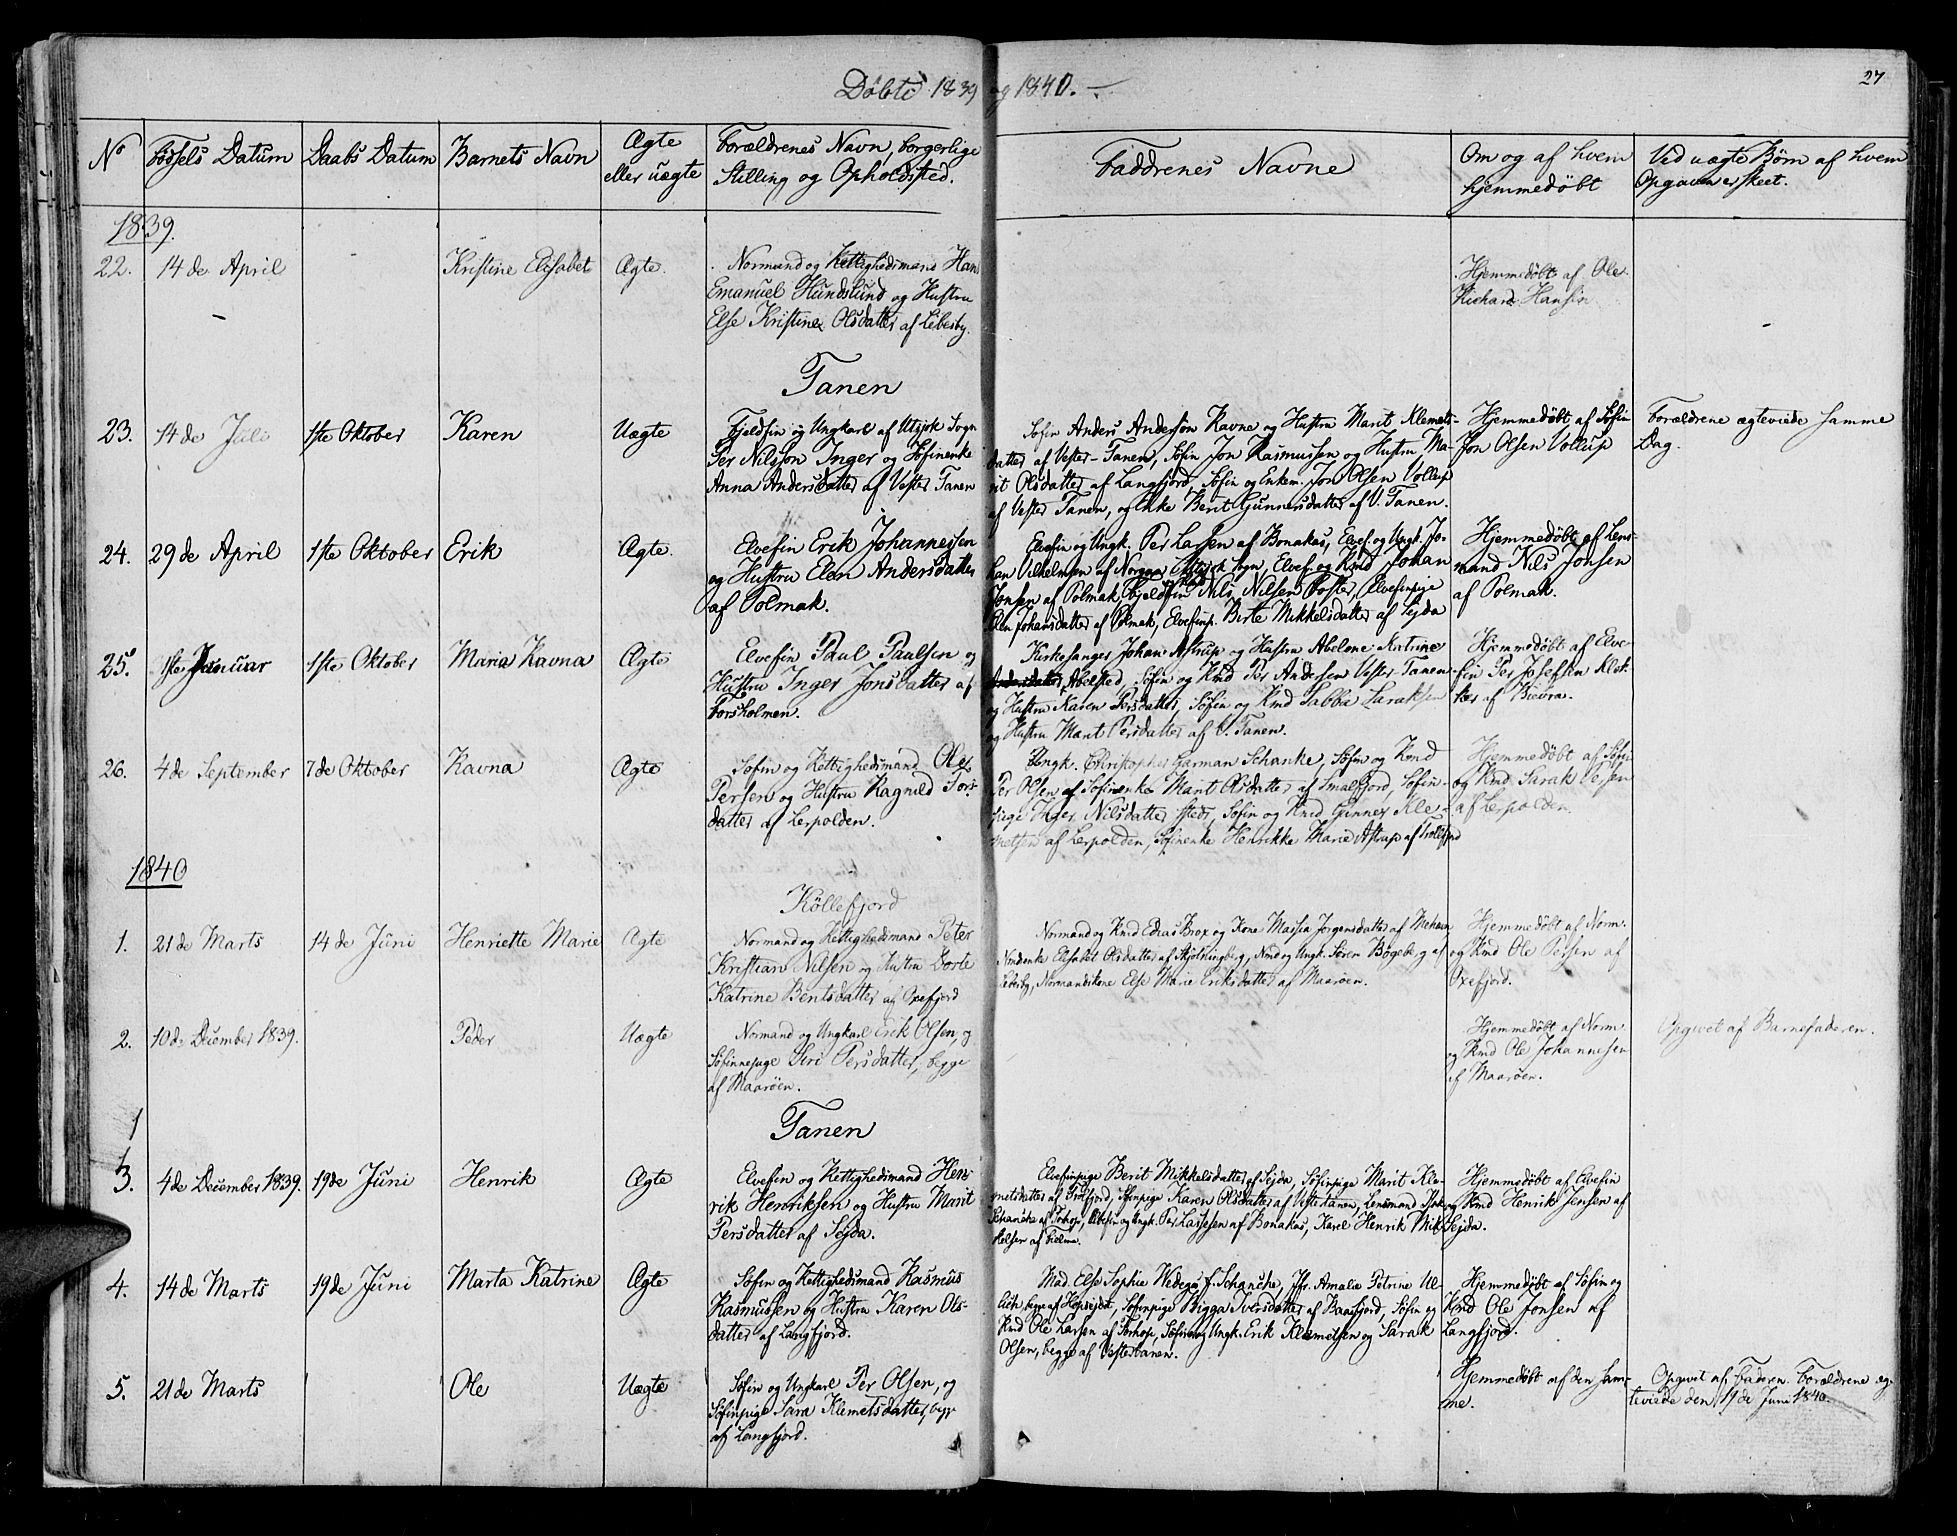 Döbte 1839 og 1840.
27
No
Födsels Datum
Daabs Datum
Barnets Navn
Ægte
eller uægte
Forældrenes Navn, borgerlige
Stilling og Opholdsted.
Faddrenes Navne
Om og af hvem
hjemmedöbt
Ved uægte Börn af hvem
Opgaven er skeet.
1839.
22.
14de April
Kristine Elisabet
Ægte.
Normand og Rettighedsmand Hans
Emanuel Hundslund og Hustru
Else Kristine Olsdatter af Lebesby.
Hjemmedöbt af Ole
Richard Hansen
Tanen
23.
14de Juli
1ste Oktober
Karen
Uægte
Fjeldfin og Ungkarl af Utsjok Sogn
Per Nilsson Inger og Söfinenke
Anna Andersdatter af Vester Tanen
Söfin Anders Anderson Ravna og Hustru Marit Klemets-
datter af Vester-Tanen, Söfin Jon Rasmussen og Hustru Ma-
rit Olsdatter af Langfjord, Söfin og Enkem. Jon Olsen Vollup
af Vester Tanen, og Enke Berit Gunnersdatter af V. Tanen.
Hjemmedöbt af Söfin
Jon Olsen Vollup
Forældrene ægteviede samme
Dag.
24.
29de April
1ste Oktober
Erik
Ægte.
Elvefin Erik Johannesen
og Hustru Elen Andersdatter
af Polmak.
Elvefin og Ungk. Per Larsen af Bonakas, Elvef. og Ungk. Jo-
han Vilhelmsen af Utsjok Sogn, Elvef. og Rmd Johan
Jonsen af Polmak, Fjeldfin Nils Nilsen Poster, Elvefinpige
Elen Johansdatter af Polmak, Elvefinp. Birte Mikkelsdatter af Sejda
Hjemmedöbt af Lens-
mand Nils Jonsen
af Polmak.
25.
1ste Januar
1ste Oktober
Maria Ravna
Ægte
Elvefin Paul Paulsen og
Hustru Inger Jonsdatter af
Forsholmen.
Kirkesanger Johan Astrup og Hustru Abelone Katrine
Abelsted, Söfin og Rmd Per Andersen Vester Tanen
og Hustru Karen Persdatter, Söfin og Rmd Sabba Saraksen
og Hustru Marit Persdatter af V. Tanen.
Hjemmedöbt af Elve-
fin Per Josefsen
af Bievra.
26.
4de September
7de Oktober
Ravna
Ægte
Söfin og Rettighedsmand Ole
Persen og Hustru Ragnild Tor-
datter af Lerpolden.
Ungk. Christopher Garman Schanke, Söfin og Rmd
Per Olsen af Söfinenke Marit Olsdatter af Smalfjord, Söfin-
pige Inger Nilsdatter steds, Söfin og Rmd Gunner Kle-
metsen af Lerpolden, Söfinenke Henrikke Marie Astrup af Trollfjord
Hjemmedöbt af Söfin
og Rmd Sarak Olsen
af Lerpolden.
1840
Köllefjord
1.
21de Marts
14de Juni
Henriette Marie
Ægte
Normand og Rettighedsmand Peter
Kristian Nilsen og Hustru Dorte
Katrine Bentsdatter af Oxefjord
Normand og Rmd Edias Brox og Kone Massia Jörgensdatter af Mehavn
Nmdenke Elisabet Olsdatter af Skjötningberg, Nmd og Ungk. Sören Bögeberg af
Lebesby, Normandskone Else Marie Eriksdatter af Maaröen.
Hjemmedöbt af Norm.
og Rmd Ole Persen af
Oxefjord.
2.
10de December 1839.
Peder
Uægte
Normand og Ungkarl Erik Olsen, og
Söfinnepige Siri Persdatter, begge
af Maaröen.
Hjemmedöbt af Norm.
og Rmd Ole Johannesen
af Maaröen.
Opgivet af Barnefaderen.
Tanen
3.
4de December 1839.
19de Juni
Henrik
Ægte
Elvefin og Rettighedsmand Hen-
rik Henriksen og Hustru Marit
Persdatter af Sejda.
Elvefinpige Berit Mikkelsdatter af Sejda, Söfinpige Marit Kle-
metsdatter af Trolfjord, Söfinpige Karen Olsdatter af Vestertanen, Lensmand
Schanche af Torhop, Elvefin og Ungk. Per Lassesen af Bonakas, Karel Henrik Mik-
kelsen af
Hjemmedöbt af Elvefin
og Rmd Henrik Jensen af
Sejda.
4.
14de Marts
19de Juni
Marta Katrine
Ægte
Söfin og Rettighedsmand Rasmus
Rasmussen og Hustru Karen Ols-
datter af Langfjord.
Mad. Else Sophie Wedege f. Schanche, Jfr. Amalia Petrine Ul-
lich, begge af Hopsejdet, Söfinpige Bigga Iversdatter af Baasfjord, Söfin og
Rmd Ole Larsen af Torhop, Söfin og Ungk. Erik Klemetsen og Sarak
Olsen, begge af Vestertanen.
Hjemmedöbt af Söfin og
Rmd Ole Jonsen af
Langfjord.
5.
21de Marts
Ole
Uægte
Söfin og Ungkarl Per Olsen, og
Söfinpige Sara Klemetsdatter, begge
af Langfjord.
Hjemmedöbt af den sam-
me.
Opgivet af Faderen. Forældrene æg-
teviede den 19de Juni 1840.